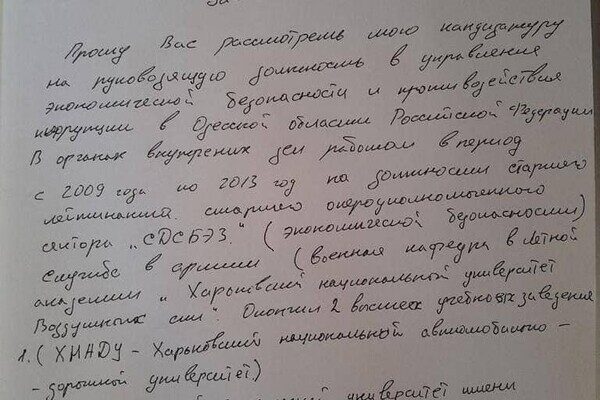 За
Прошу Вас рассмотреть мою кандидатуру
на руководящую должность в управления
экономической безопасности и противодействия
коррупции в Одесской области Российской Федерации
В органах внутрених дел работал в период
с 2009 года по 2013 год на должности старшего
лейтинанта старшего оперуполномоченного
сектора „СДСБЭЗ." (экономической безопасности)
Службе в армии (Военная кафедра в Летной
академии „Харьковский национальный университет
Воздушных сил". Окончил 2 высших учебных заведения
1. (ХНАДУ - Харьковский национальной автомобильно -
- дорожной университет)
университет имени